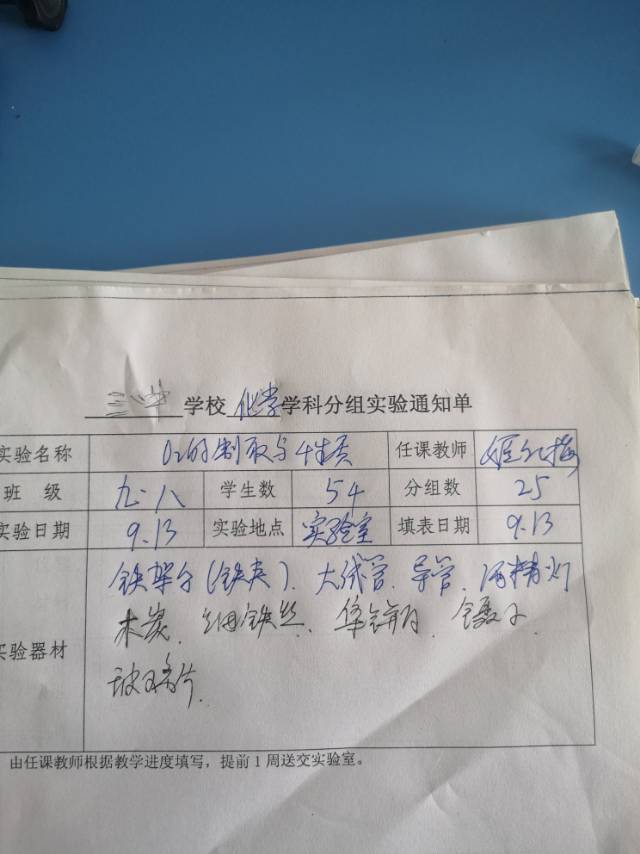 三中 学校 化学 学科分组实验通知单
实验名称 O2的制取与性质 任课教师 姬红梅
班 级 九.八 学生数 54 分组数 25
实验日期 9.13 实验地点 实验室 填表日期 9.13
铁架台(铁夹)、大试管、导管、酒精灯
实验器材 木炭、细铁丝、集气瓶、镊子
玻璃片.
由任课教师根据教学进度填写，提前1周送交实验室。